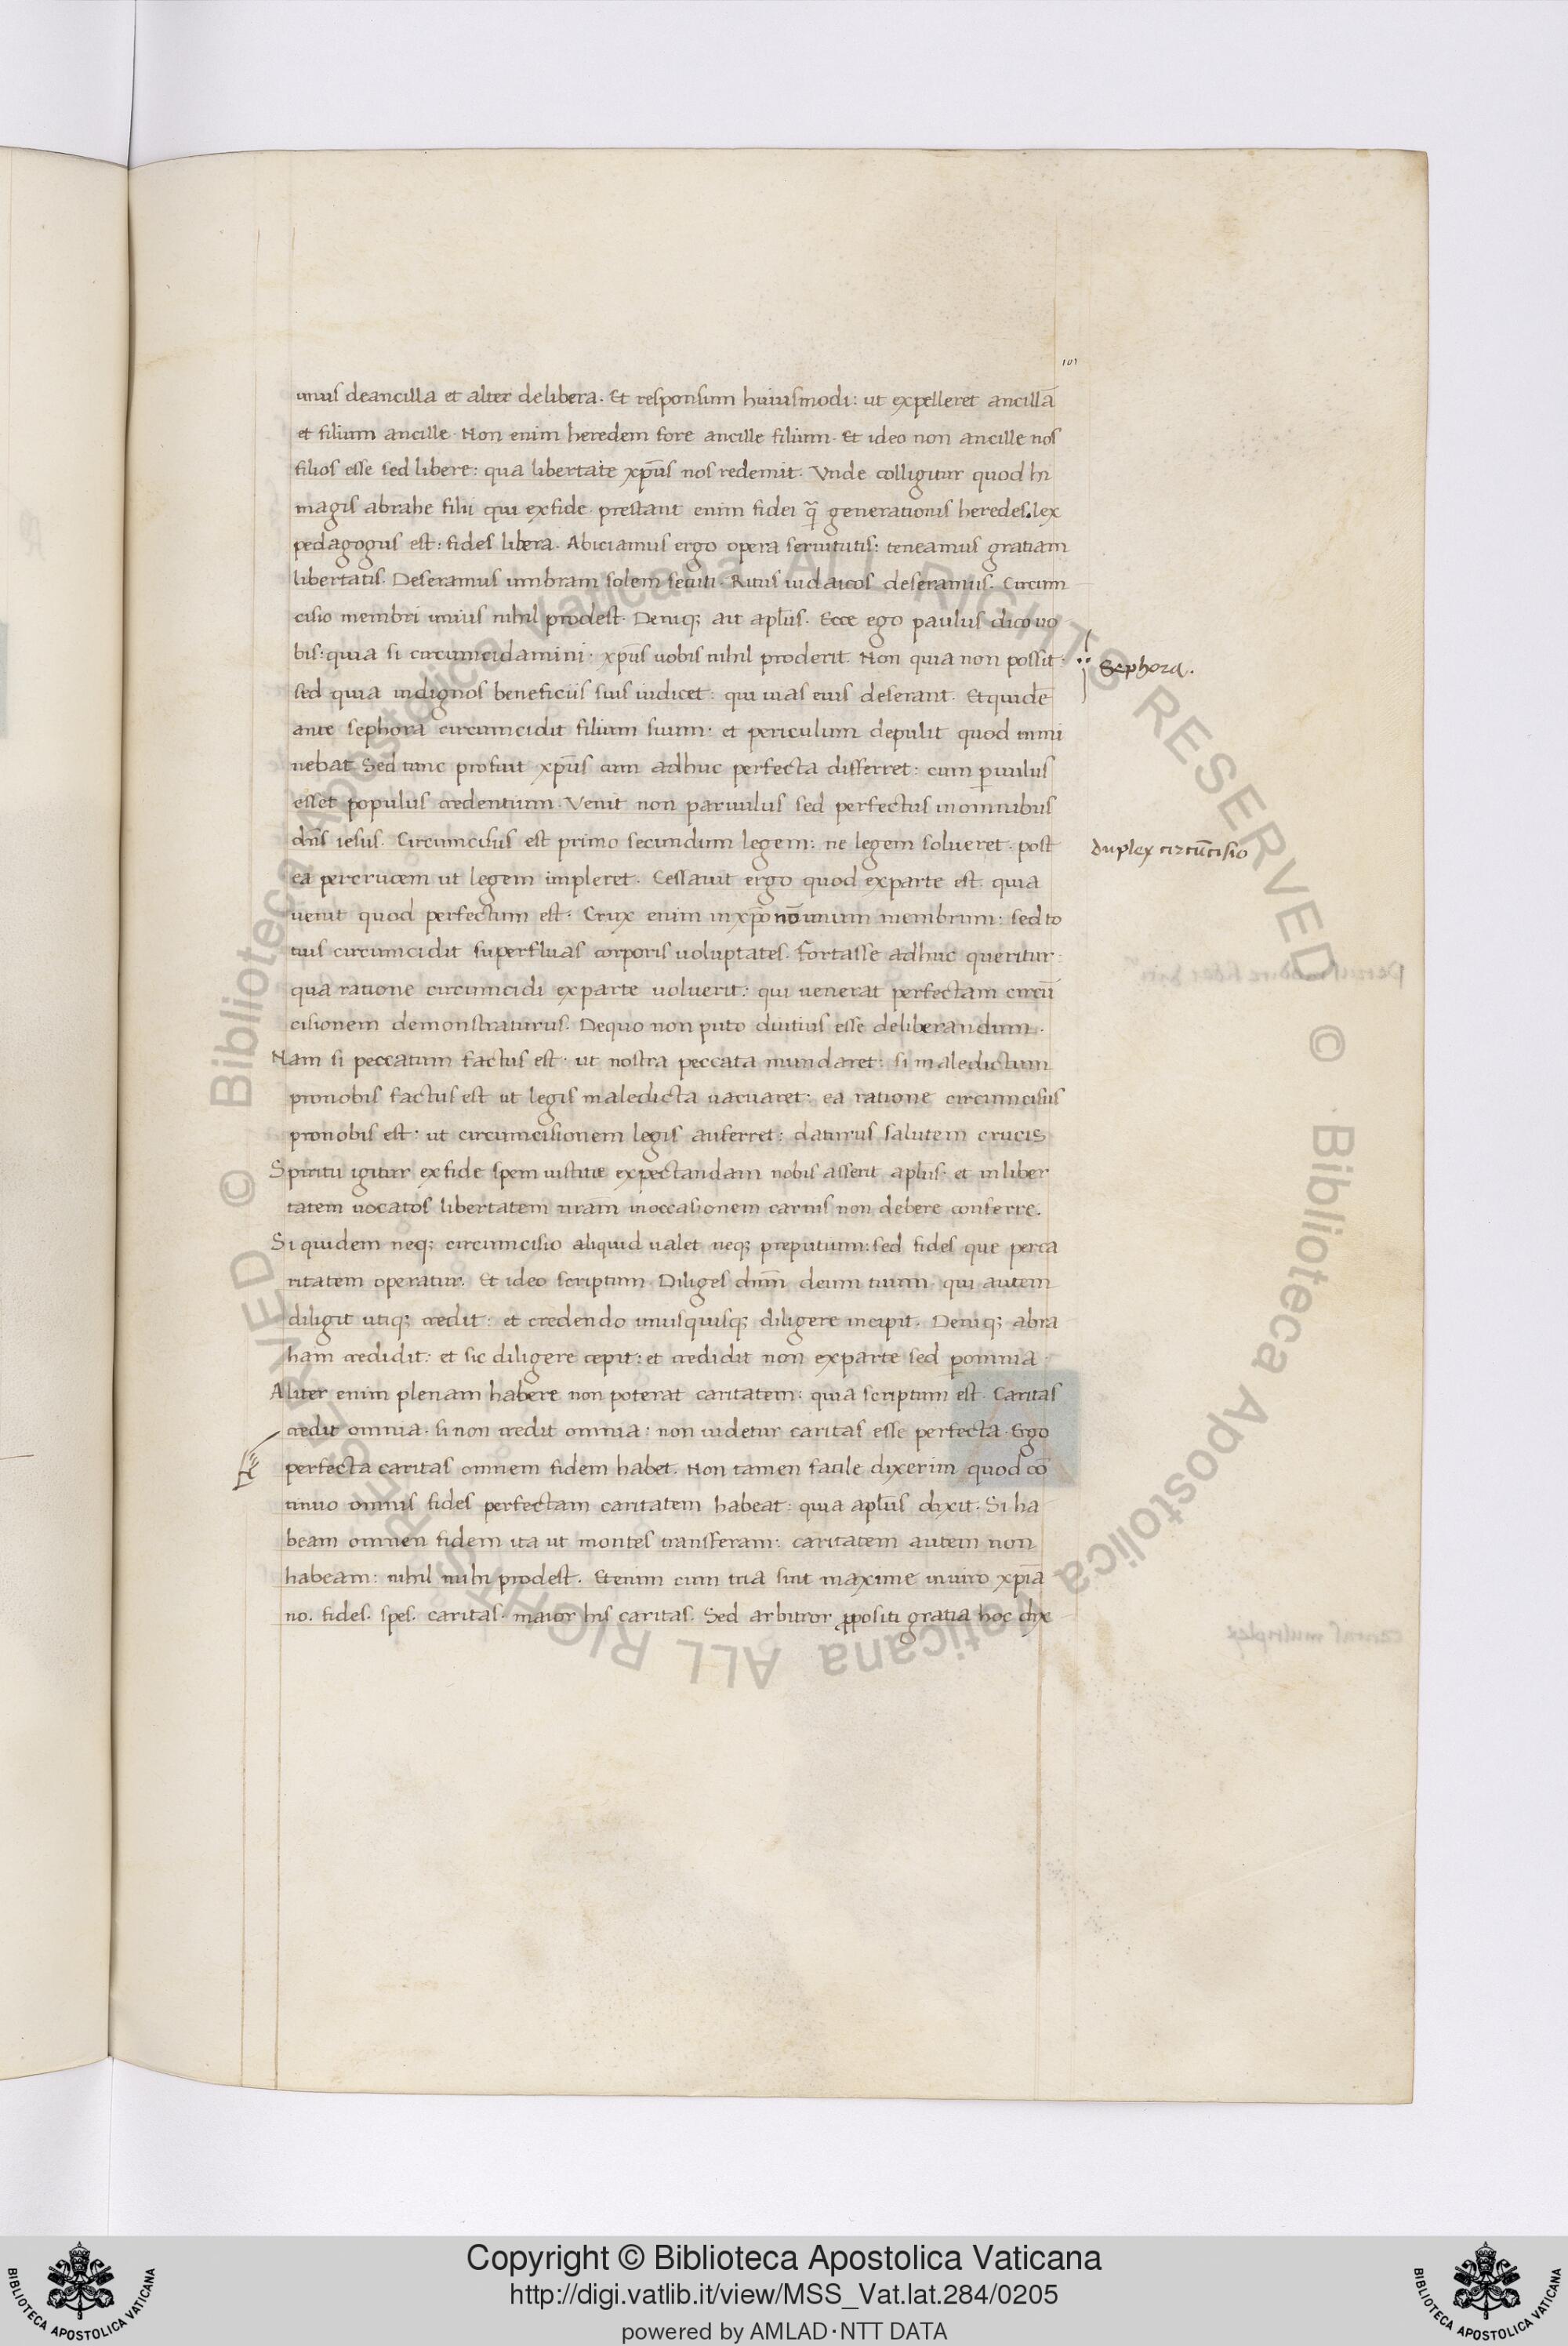 101
unus deancilla et alter delibera. Et responsum huiusmodi: ut expelleret ancillā
et filium ancille. Non enim heredem fore ancille filium. Et ideo non ancille nos
filios esse sed libere: qua libertate xp̄us nos redemit. Vnde colligitur quod hi
magis abrahe filii qui exfide. prestant enim fidei q̄ generationis heredes. lex
pedagogus est: fides libera. Abiciamus ergo opera seruitutis: teneamus gratiam
libertatis. Deseramus umbram solem secuti. Ritus iudaicos deseramus. Circum
cisio membri unius nihil prodest. Deniq; ait apl̄us. Ecce ego paulus dico uo
bis: quia si circumcidamini. xp̄us uobis nihil proderit. Non quia non possit.
Sephora.
sed quia indignos beneficiis suis iudicet: qui uias eius deserant. Et quidē
ante sephora circumcidit filium suum: et periculum depulit quod inmi
nebat. Sed tunc profuit xp̄us cum adhuc perfecta differret: cum ꝑuulus
esset populus credentium. Venit non paruulus sed perfectus in omnibus
dn̄s iesus. Circumcisus est primo secundum legem: ne legem solueret. post
duplex circūcisio
ea percrucem ut legem impleret. Cessauit ergo quod exparte est. quia
uenit quod perfectum est. Crux enim in xp̄o nō unum membrum: sed to
tius circumcidit superfluas corporis uoluptates. Fortasse adhuc queritur
qua ratione circumcidi exparte uoluerit: qui uenerat perfectam circū
cisionem demonstraturus. Dequo non puto diutius esse deliberandum.
Nam si peccatum factus est. ut nostra peccata mundaret: si maledictum
pronobis factus est ut legis maledicta uacuaret: ea ratione circumcisus
pronobis est: ut circumcisionem legis auferret: daturus salutem crucis
Spiritu igitur exfide spem iustitie expectandam nobis asserit apl̄us. et inliber
tatem uocatos libertatem ur̄am in occasionem carnis non debere conferre.
Si quidem neq; circumcisio aliquid ualet neq; preputium: sed fides que perca
ritatem operatur. Et ideo scriptum. Diliges dn̄m deum tuum. qui autem
diligit utiq; credit: et credendo unusquisq; diligere incipit. Deniq; abra
ham credidit: et sic diligere cepit: et credidit non exparte sed ꝑomnia.
Aliter enim plenam habere non poterat caritatem: quia scriptum est. Caritas
credit omnia. si non credit omnia: non uidetur caritas esse perfecta. Ergo
perfecta caritas omnem fidem habet. Non tamen facile dixerim quod cō
tinuo omnis fides perfectam caritatem habeat: quia apl̄us dixit. Si ha
beam omnen fidem ita ut montes transferam: caritatem autem non
habeam: nihil mihi prodest. Etenim cum tria sint maxime inuiro xp̄ia
no. fides. spes. caritas. maior his caritas. Sed arbitror ꝓpositi gratia hoc dix
Copyright © Biblioteca Apostolica Vaticana
http://digi.vatlib.it/view/MSS_Vat.lat.284/0205
powered by AMLAD·NTT DATA
BIBLIOTECA APOSTOLICA VATICANA
BIBLIOTECA APOSTOLICA VATICANA
© Biblioteca Apostolica Vaticana ALL RIGHTS RESERVED © Biblioteca Apostolica Vaticana ALL RIGHTS RESERVED